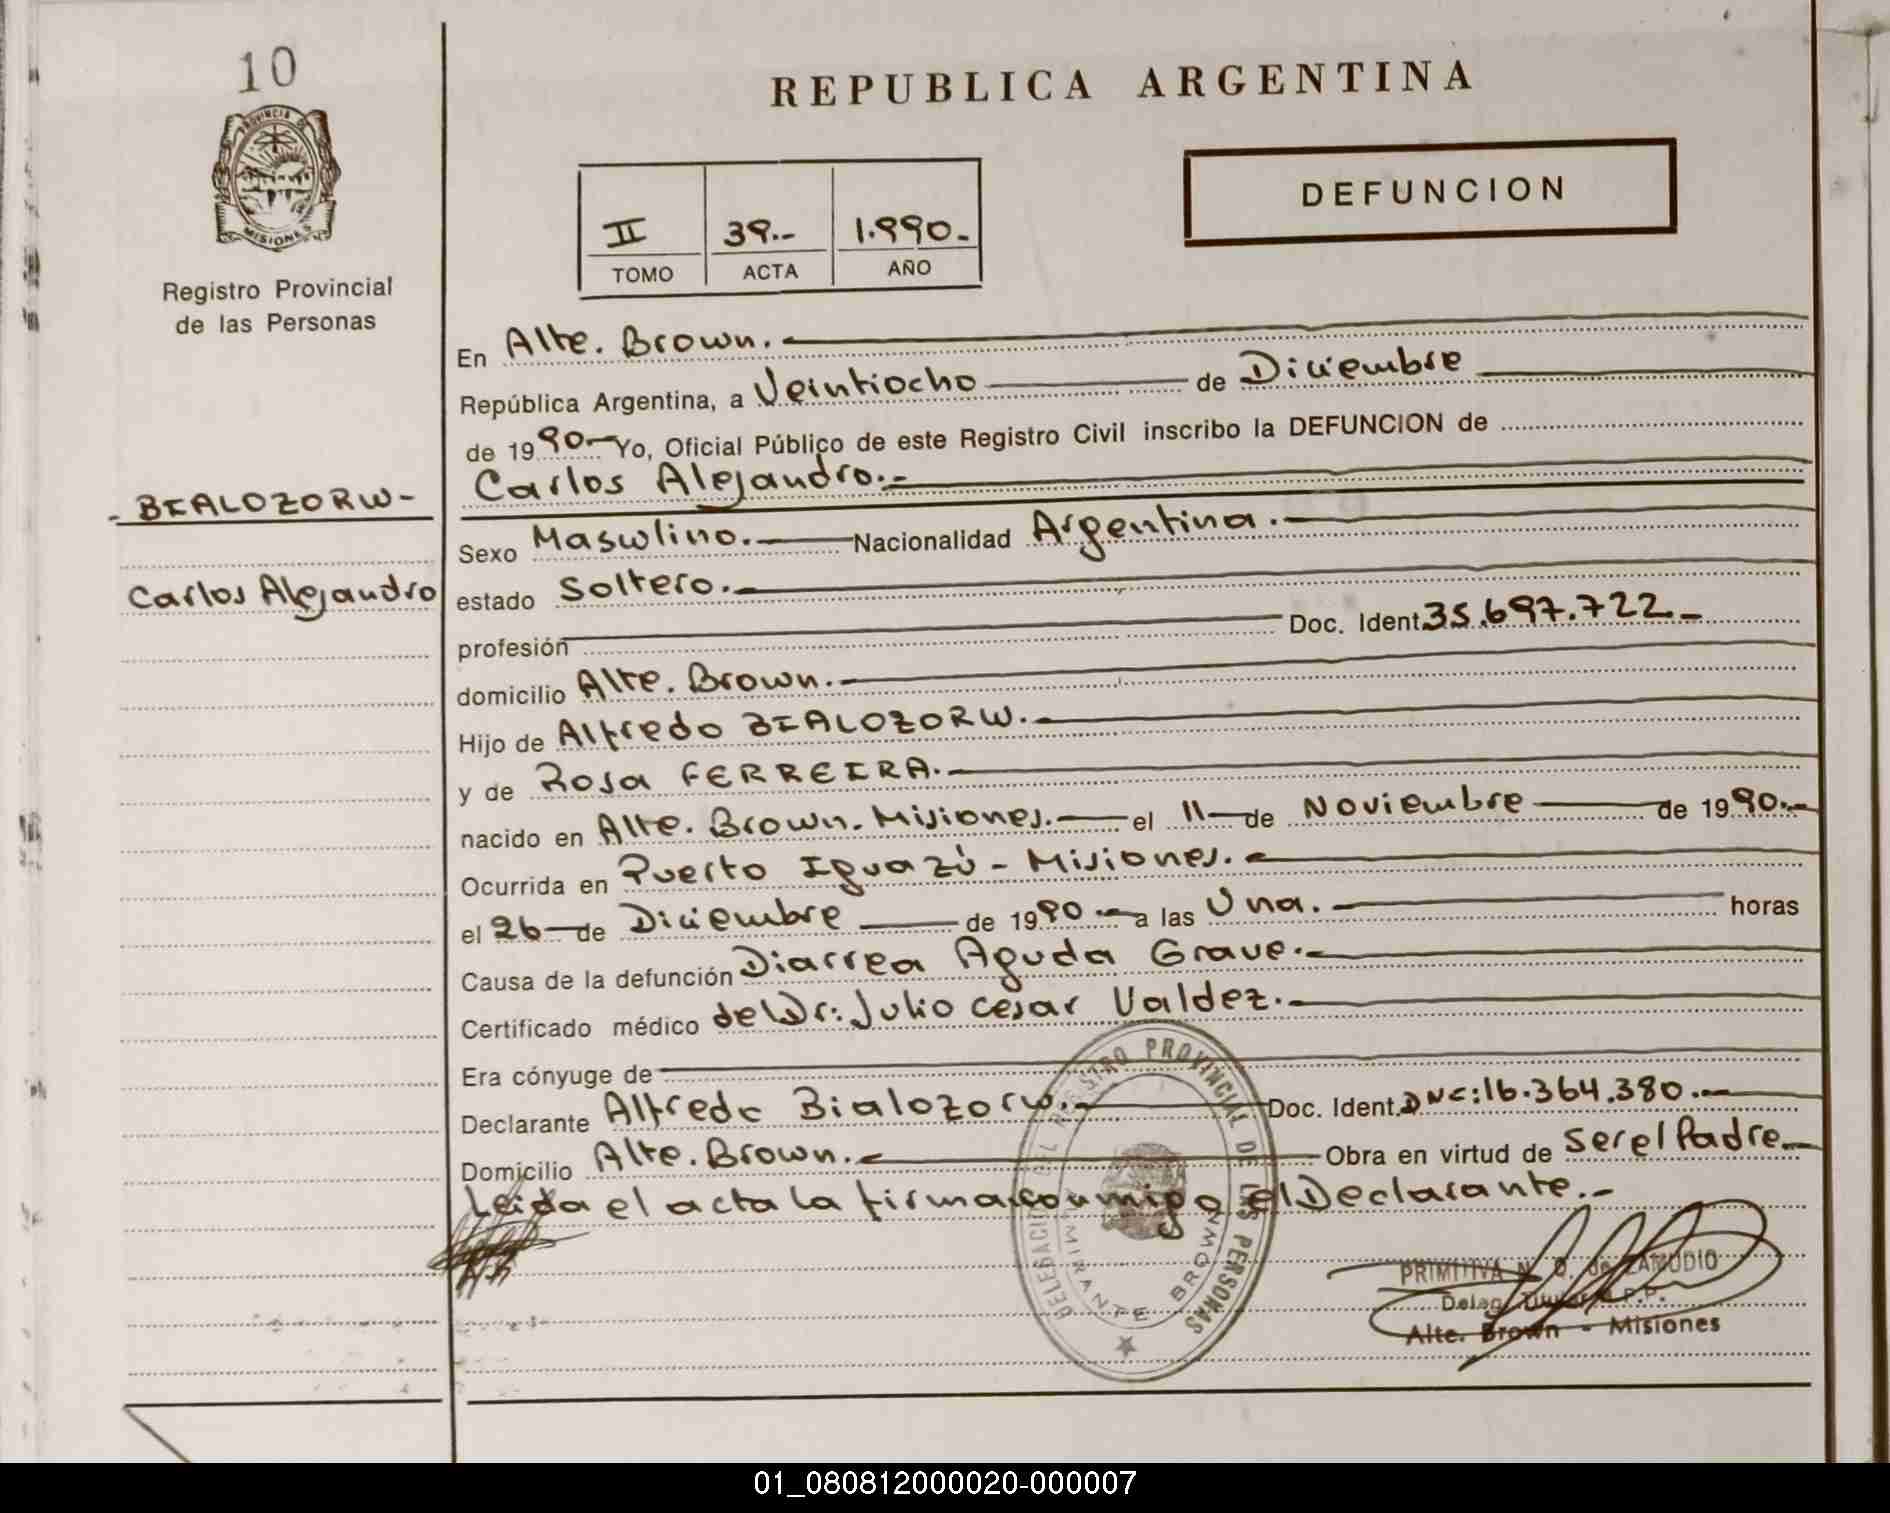 10
PROVINCIA DE
MISIONES
Registro Provincial
de las Personas
REPUBLICA ARGENTINA
DEFUNCION
II 39.- 1.990.-
TOMO ACTA AÑO
En Alte. Brown.-
República Argentina, a Veintiocho de Diciembre
de 1990.- Yo, Oficial Público de este Registro Civil inscribo la DEFUNCION de
Carlos Alejandro.-
- BIALOZORW-
Carlos Alejandro
Sexo Masculino.- Nacionalidad Argentina.-
estado Soltero.-
profesión Doc. Ident. 35.697.722.-
domicilio Alte. Brown.-
Hijo de Alfredo BIALOZORW.-
y de Rosa FERREIRA.-
nacido en Alte. Brown. Misiones.- el 11- de Noviembre de 1990.-
Ocurrida en Puerto Iguazú - Misiones.-
el 26- de Diciembre de 1990.- a las Una.- horas
Causa de la defunción Diarrea Aguda Grave.-
Certificado médico del Dr: Julio Cesar Valdez.-
Era cónyuge de
Declarante Alfredo Bialozorw.- Doc. Ident. DNI: 16.364.380.-
Domicilio Alte. Brown.- Obra en virtud de Ser el Padre.-
Leida el acta la firma conmigo el Declarante.-
DELEGACION DEL REGISTRO PROVINCIAL DE LAS PERSONAS
ALMIRANTE BROWN
PRIMITIVA N. de ZAMUDIO
Deleg. Titular R.P.P.
Alte. Brown - Misiones
01_080812000020-000007